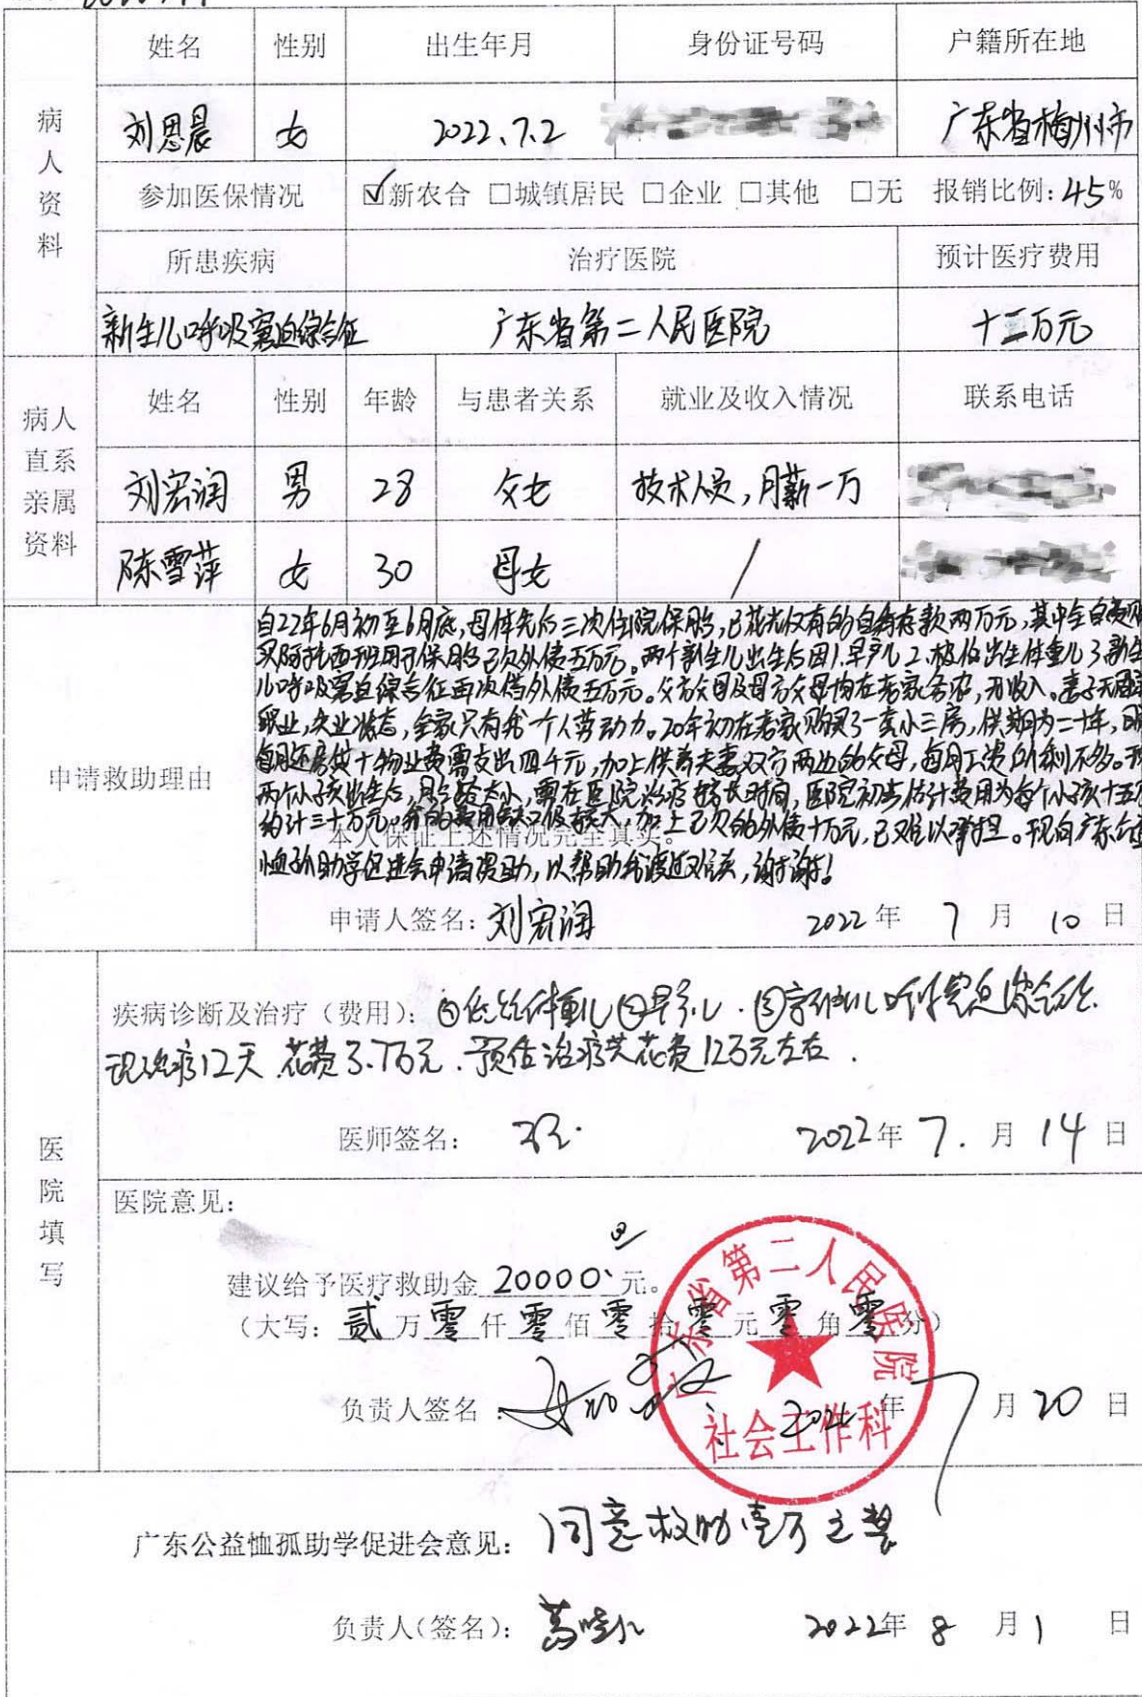 姓名 性别 出生年月 身份证号码 户籍所在地
病人资料
刘思晨 女 2022.7.2 广东省梅州市
参加医保情况 ☑新农合 □城镇居民 □企业 □其他 □无 报销比例:45%
所患疾病 治疗医院 预计医疗费用
新生儿呼吸窘迫综合征 广东省第二人民医院 十二万元
病人直系亲属资料
姓名 性别 年龄 与患者关系 就业及收入情况 联系电话
刘宏润 男 28 父女 技术人员,月薪一万
陈雪萍 女 30 母女 /
申请救助理由
自22年6月初至6月底,母体先后三次住院保胎,已花光仅有的自身存款两万元,其中全自费购
买阿托西班用于保胎已欠外债五万元。两个新生儿出生后因1.早产儿2.极低出生体重儿3.新生
儿呼吸窘迫综合征再次借外债五万元。父方父母及母方父母均在老家务农,无收入。妻子无固定
职业,失业状态,全家只有我一个人劳动力。20年初在老家购买了一套小三房,供期为二十年,目前
每月还房贷+物业费需支出四千元,加上供养夫妻双方两边的父母,每月工资所剩不多。现
两个小孩出生后,月龄太小,需在医院治疗较长时间,医院初步估计费用为每个小孩十五万
约计三十万元。缺口极大,加上已欠的外债十万元,已难以承担。现向广东公益
恤孤助学促进会申请援助,以帮助我渡过难关,谢谢!
本人保证上述情况完全真实。
申请人签名:刘宏润 2022年 7月 10日
医院填写
疾病诊断及治疗(费用):
现治疗12天 花费3.7万元.预估治疗共花费12万元左右.
医师签名: 2022年 7.月 14日
医院意见:
建议给予医疗救助金 20000 元。
(大写:贰万零仟零佰零拾零元零角零分)
负责人签名: 年 7月 20日
广东省第二人民医院
社会工作科
广东公益恤孤助学促进会意见:同意救助壹万元整
负责人(签名): 2022年 8月 1日